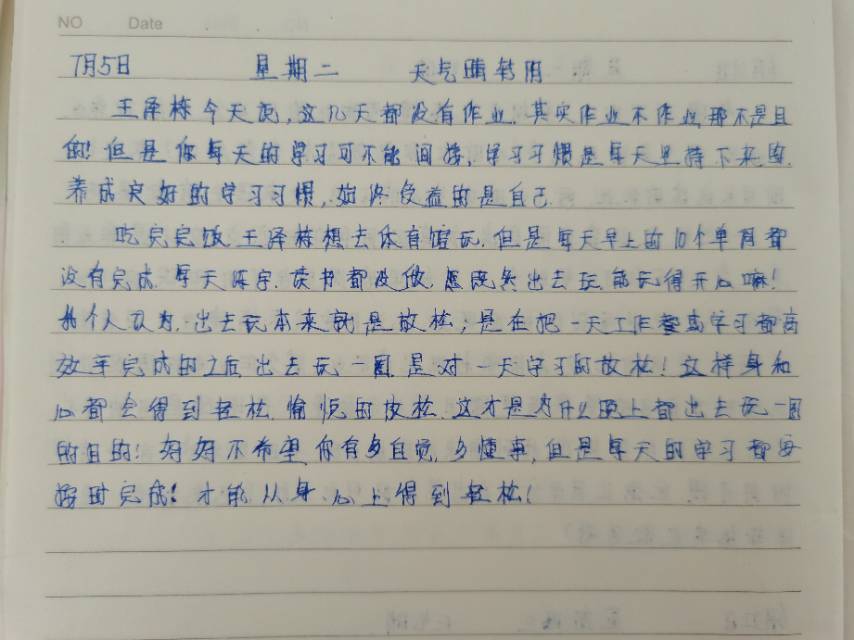 NO Date
7月5日 星期二 天气晴转阴
王泽栋今天说,这几天都没有作业.其实作业不作业那不是目
的!但是你每天的学习可不能间接,学习习惯是每天坚持下来的.
养成良好的学习习惯,始终受益的是自己.
吃完完饭王泽栋想去体育馆玩.但是每天早上的10个单词都
没有完成.每天练字.读书都没做.既然出去玩能玩得开心嘛!
我个人认为.出去玩本来就是放松;是在把一天工作或学习都高
效率完成的之后出去玩一圈是对一天学习的放松!这样身和
心都会得到轻松.愉悦的放松.这才是为什么晚上都出去玩一圈
的目的!妈妈不希望你有多自觉,多懂事,但是每天的学习都要
按时完成!才能从身.心上得到轻松!